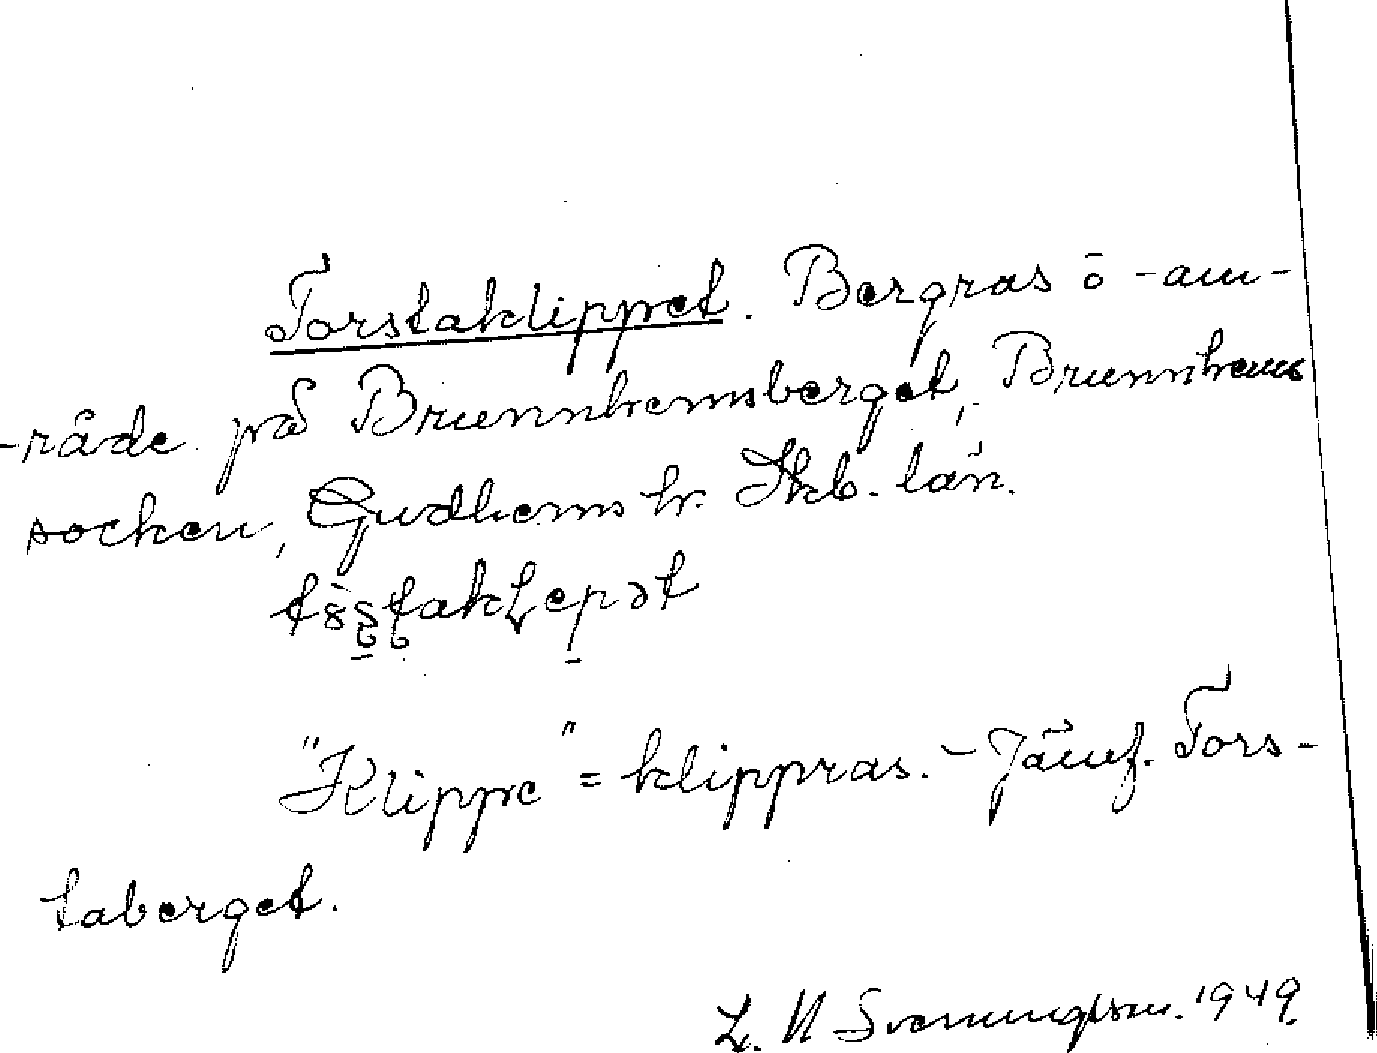 Torstaklippet. Bergras o -om-
-råde på Brunnhemsberget, Brunnhems
socken, Gudhems hr. Skb. län.
"Klippe" = klippras. – Jämf. Tors-
taberget.
L. N Svenungsson. 1949